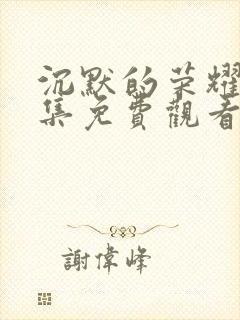 沉默的荣耀
集免費觀看
謝偉峰